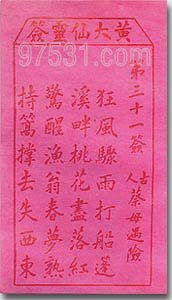 黃大仙靈簽
97531.com
第三十一簽
古人 蔡母遇險
狂風驟雨打船篷
溪畔桃花盡落紅
驚醒漁翁春夢熟
持篙撐去失西東